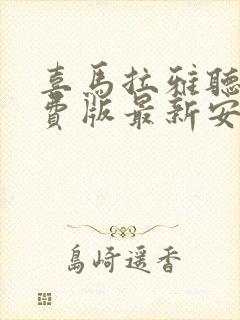 喜馬拉雅聽
費版最新安
島崎遥香